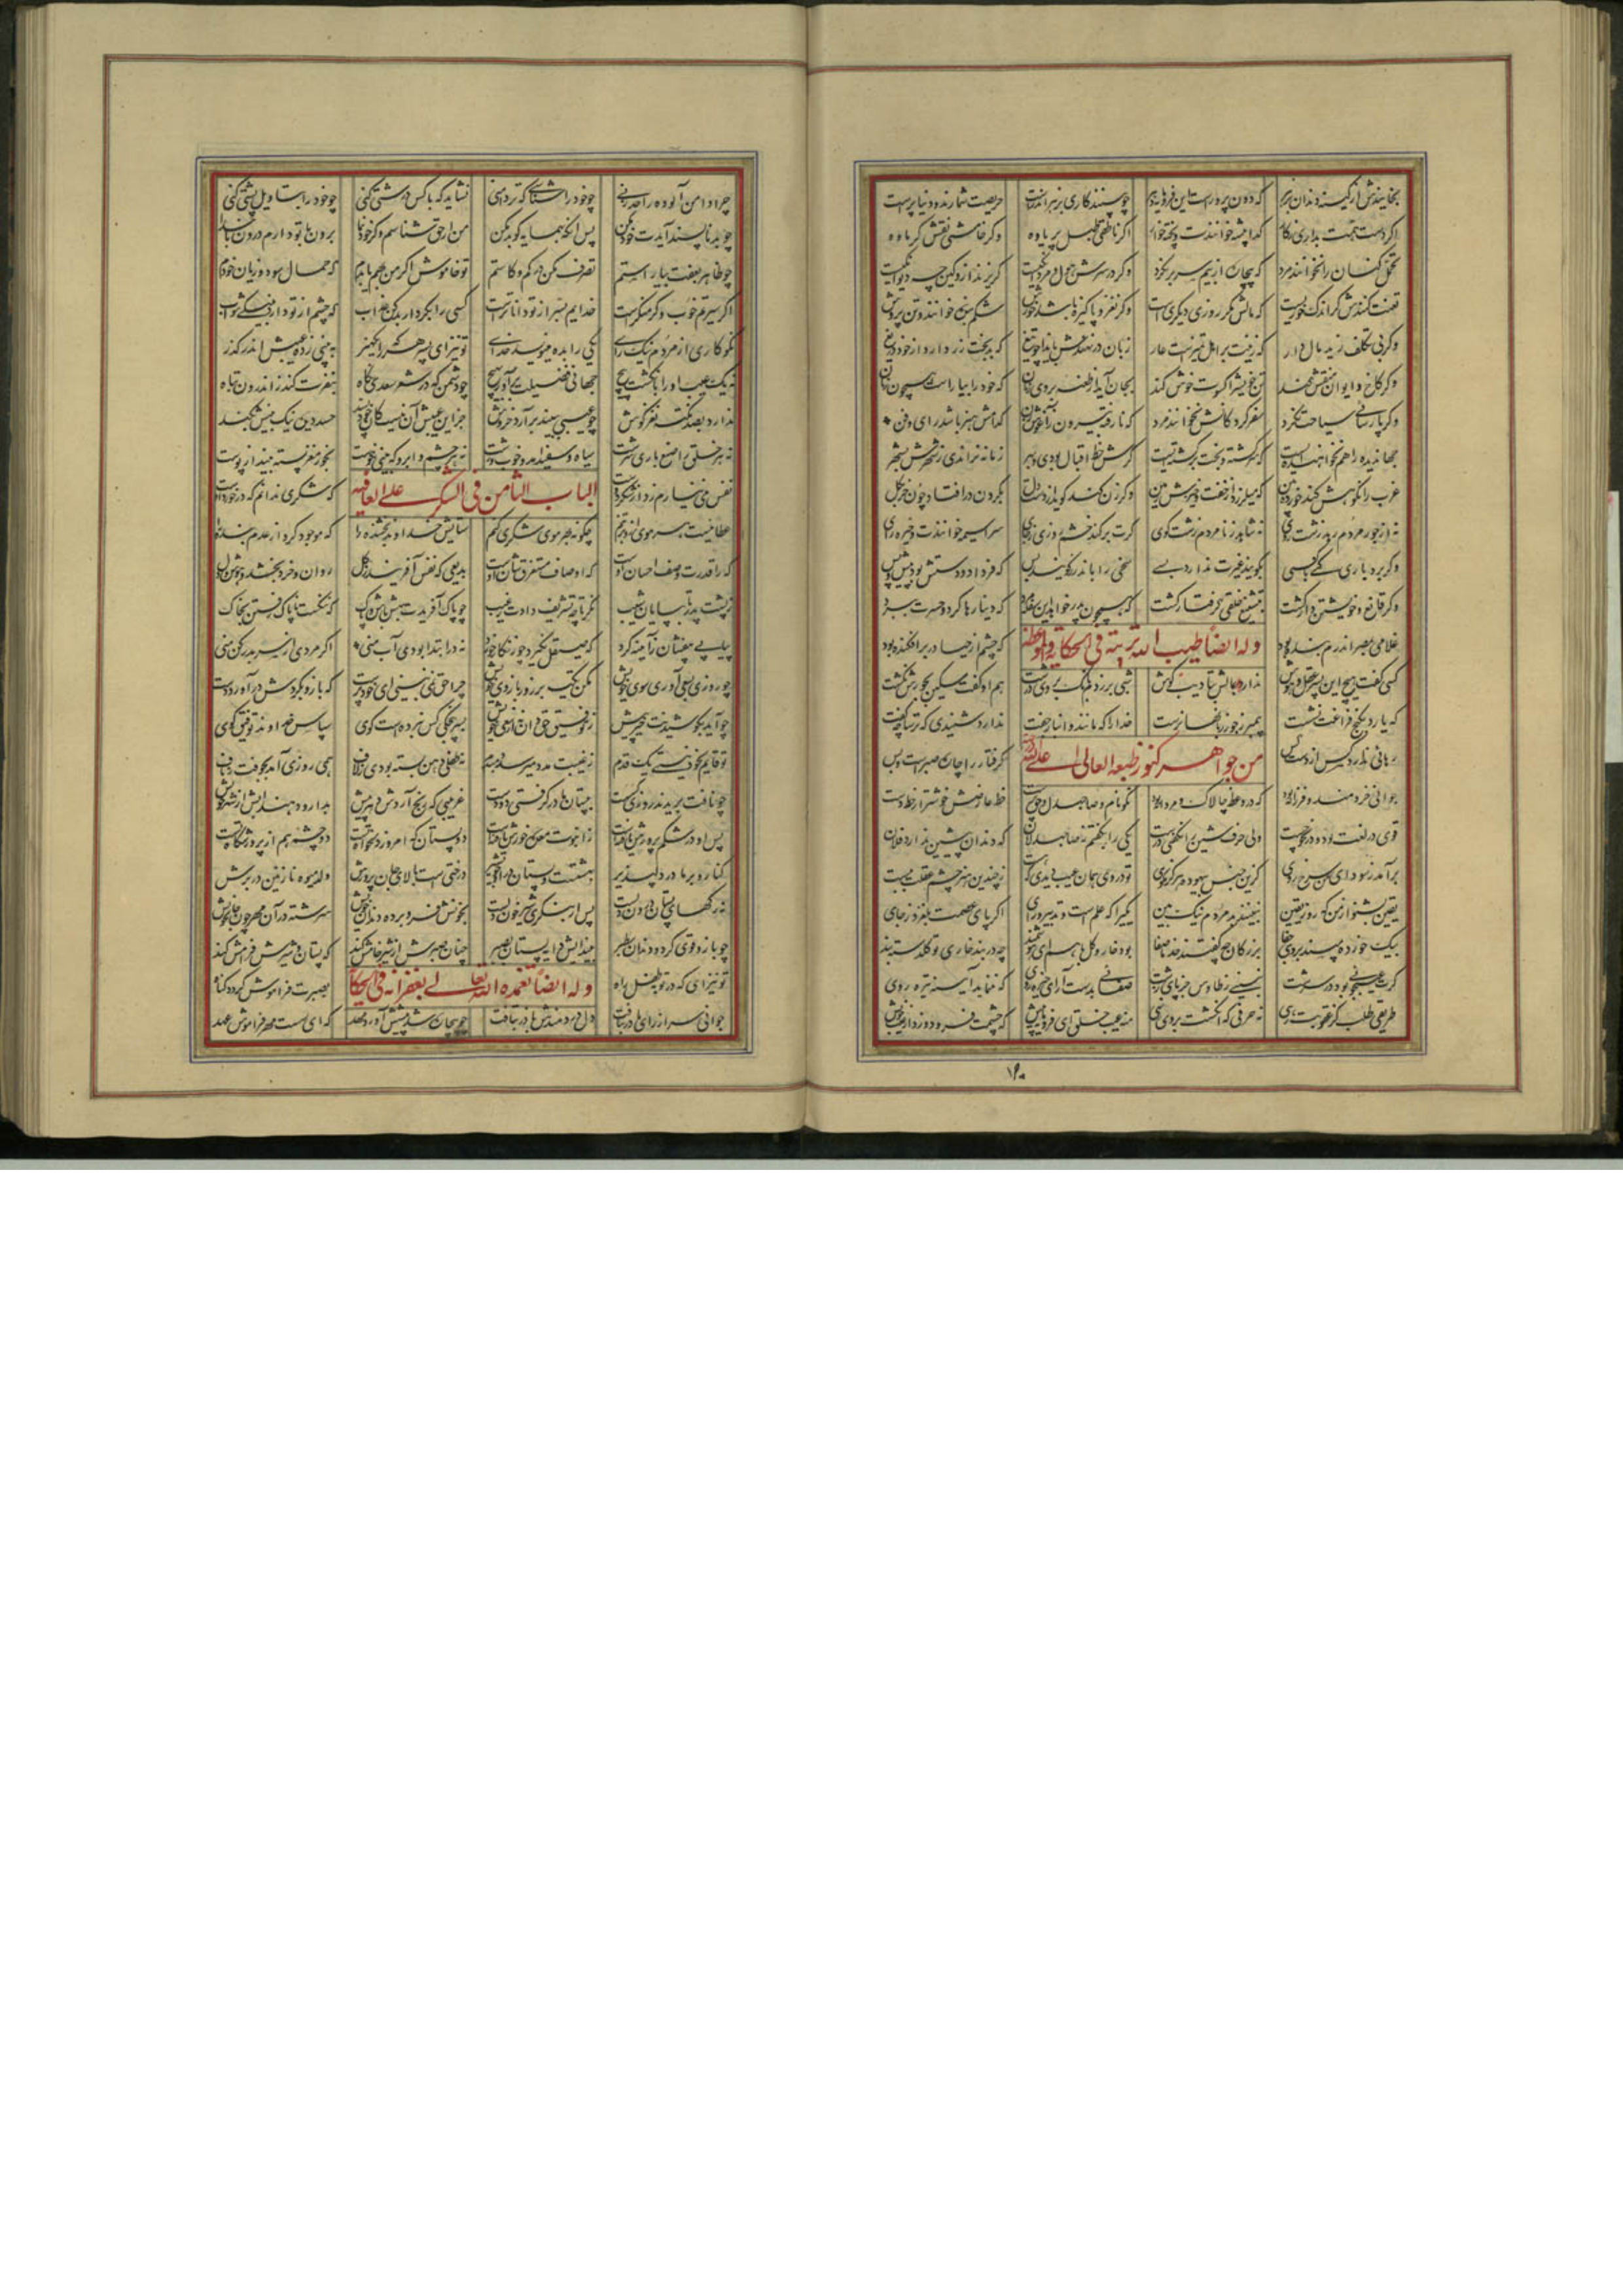 بخایندش از کینه دندان بزهر که دون پرورست این فرومایه دهر چو بینند کاری حریصت شمارند و دنیا پرست
اگر دست همت بداری ز کار گدا پیشه خوانندت و پخته خوار اگر ناطقی طبل پر یاوه وگر خامشی نقش گرماوه
تحمل کنان را نخوانند مرد که بیچاره از بیم سر بر نکرد وگر در سرش هول و مردانگیست گریزند ازو کین چه دیوانگیست
تعنت کنندش گر اندک خوریست که مالش مگر روزی دیگریست وگر نغز و پاکیزه باشد خورش شکم بنده خوانند و تن پرورش
وگر بی تکلف زید مال دار که زینت بر اهل تمیزست عار زبان در نهندش بایذا چو تیغ که بدبخت زر دارد از خود دریغ
وگر کاخ و ایوان منقش کند تن خویش را کسوت خوش کند بجان آید از طعنه بروی زنان که خود را بیاراست همچون زنان
وگر پارسائی سیاحت نکرد سفر کردگانش نخوانند مرد که نارفته بیرون ز آغوش زن کدامش هنر باشد و رای و فن
جهاندیده را هم که سرگشته و بخت برگشته گرش حظ اقبال بودی و بهر زمانه نراندی ز شهرش بشهر
عزب را نکوهش کند خرده بین که میلرزد از خفت و خیزش زمین وگر زن کند گوید از دست دل بگردن در افتاد چون خر بگل
نه از جور مردم رهد زشت روی نه شاهد ز نامردم زشت گوی گرت برکند خشم روزی ز جای سراسیمه خوانندت و خیره رای
وگر بردباری کنی با کسی بگویند غیرت ندارد بسی سخی را باندرز گویند بس که فردا دو دستش بود پیش و پس
وگر قانع و خویشتن دار گشت بتشنیع خلقی گرفتار گشت که همچون پدر خواهد این سفله مرد که دینار رها کرد و حسرت ببرد
وله ایضا طیب الله تربته فی الحکایة والموعظة
غلامی بمصر اندرم بنده بود که چشم از حیا در بر افکنده بود
کسی گفت هیچ این پسر عقل و هوش ندارد بمالش بتادیب گوش شبی بر زدم بانگ بر وی درشت هم او گفت مسکین بجورش بکشت
که یارد بکنج فراغت نشست پیمبر ز جور زبانها نرست خدا را که مانند و انباز و جفت ندارد شنیدی که ترسا چه گفت
من جواهر کنوز طبعه العالی
رهائی نیابد کس از دست کس گرفتار را چاره صبر است و بس
جوانی خردمند و فرزانه بود که در وعظ چالاک و مردانه بود نکو نام و صاحبدل و حق پرست خط عارضش خوشتر از خط دست
قوی در لغت بود و در نحو چست ولی حرف شین را نگفتی درست یکی را بگفتم ز صاحبدلان که دندان پیشین ندارد فلان
برآمد ز سودای من سرخ روی کزین جنس بیهوده دیگر مگوی تو در وی همان عیب دیدی که هست ز چندین هنر چشم عقلت ببست
یقین بشنو از من که روز یقین نبینند بد مردم نیک بین یکی را که علم است و تدبیر و رای گرش پای عصمت بلغزد ز جای
بیک خورده مپسند بروی جفا بزرگان چه گفتند خذ ما صفا بود خار و گل با هم ای هوشمند چه در بند خاری تو گلدسته بند
کرا زشت خوئی بود در سرشت نبیند ز طاوس جز پای زشت صفائی بدست آر ای خیره روی که ننماید آیینه تیره روی
طریقی طلب کز عقوبت رهی نه حرفی که انگشت بروی نهی منه عیب خلق ای فرومایه پیش که چشمت فرو دوزد از عیب خویش
چرا دامن آلوده را حد زنم چو خود را شناسم که تر دامنم نشاید که با کس درشتی کنی چو خود را بتاویل پشتی کنی
چو بد ناپسند آیدت خود مکن پس آنکه بهمسایه گو بد مکن من ار حق شناسم وگر خود نما برون با تو دارم درون با خدا
چو ظاهر بعفت بیاراستم تصرف مکن در کم و کاستم تو خاموش اگر من بهم یا بدم که حمال سود و زیان خودم
اگر سیرتم خوب وگر منکرست خدایم بسر از تو داناترست کسی را بکردار بد کن عذاب که چشم از تو دارد بنیکی ثواب
نکو کاری از مردم نیک رای یکی را بده مینویسد خدای تو نیز ای پسر هر کرا یک هنر ببینی ز ده عیبش اندر گذر
نه یک عیب او را بانگشت پیچ جهانی فضیلت برآور بهیچ چو دشمن که در شعر سعدی نگاه بنفرت کند ز اندرون تباه
ندارد بصد نکته نغز گوش چو عیبی ببیند برآرد خروش جز این علتش نیست کان خود پسند حسد دیده نیک بینش بکند
نه هر خلق را صنع باری سرشت سیاه و سفید آمد و خوب و زشت نه هر چشم و ابرو که بینی نکوست بخور مغز پسته بینداز پوست
الباب الثامن فی الشکر علی العافیه
نفس می نیارم زد از شکر دوست که شکری ندانم که در خورد اوست
عطائیست هر موی ازو بر تنم چگونه بهر موی شکری کنم ستایش خداوند بخشنده را که موجود کرد از عدم بنده را
کرا قدرت وصف احسان اوست که اوصاف مستغرق شان اوست بدیعی که نفس آفریند ز گل روان و خرد بخشد و هوش و دل
ز پشت پدر تا بپایان شیب نگر تا چه تشریف دادت ز غیب چو پاک آفریدت بهش باش و پاک که ننگست ناپاک رفتن بخاک
پیاپی بیفشان ز آیینه گرد که صیقل نگیرد چو زنگار خورد نه در ابتدا بودی آب منی اگر مردی از سر بدر کن منی
چو روزی بسعی آوری سوی خویش مکن تکیه بر زور بازوی خویش چرا حق نمی بینی ای خود پرست که بازو بگردش در آورد و دست
چو آید بکوشیدنت خیر پیش ز توفیق حق دان نه از سعی خویش بسر پنجگی کس نبرده است گوی سپاس خداوند توفیق گوی
تو قائم بخود نیستی یک قدم ز غیبت مدد میرسد دم بدم نه طفلی دهن بسته بودی ز لاف همی روزی آمد بجوفت ز ناف
چو نافت بریدند روزی گسست بپستان مادر گرفتی دو دست غریبی که رنج آردش دهر پیش بدارو دهند آبش از شهر خویش
پس او در شکم پرورش یافتست ز انبوب معده خورش یافتست دو پستان که امروز دلخواه اوست دو چشمه هم از پرورشگاه اوست
کنار و بر مادر دلپذیر بهشتست و پستان درو جوی شیر درختی است بالای جان پرورش ولد میوه نازنین در برش
نه رگهای پستان درون دلست پس ار بنگری شیر خون دلست بخونش فرو برده دندان چو نیش سرشته در آن مهر خونخوار خویش
چو بازو قوی کرد و دندان ستبر بیندایدش دایه پستان بصبر چنان صبرش از شیر خامش کند که پستان شیرش فرامش کند
وله ایضا تغمده الله تعالی بغفرانه فی الحکایة
تو نیز ای که در توبه طفل راه بصبرت فراموش گردد گناه
جوانی سر از رای مادر بتافت دل دردمندش بآذر بتافت چو بیچاره شد پیشش آورد مهد که ای سست مهر فراموش عهد
۱۲۰